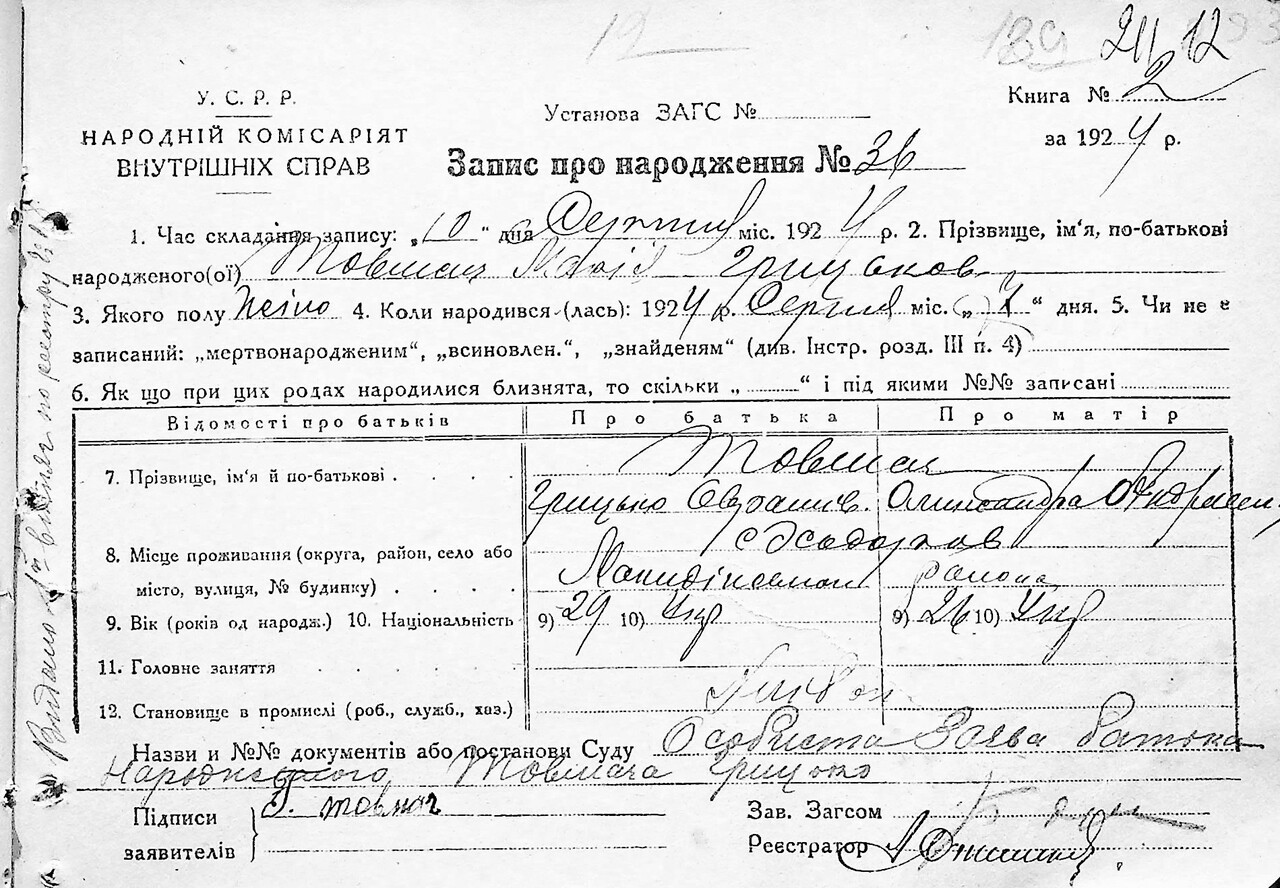 12
189
24 12
У. С. Р. Р.
НАРОДНІЙ КОМІСАРІЯТ
ВНУТРІШНІХ СПРАВ
Установа ЗАГС №
Книга № 2
за 1924 р.
Запис про народження № 36
1. Час складання запису: „10“ дня Серпня міс. 1924 р. 2. Прізвище, ім'я, по-батькові
народженого(ої) Товмач Марія Грицьков
3. Якого полу 4. Коли народився (лась): 1924 р. Серпня міс. „ “ дня. 5. Чи не є
записаний: „мертвонародженим“, „всиновлен.“, „знайденям“ (див. Інстр. розд. III п. 4)
6. Як що при цих родах народилися близнята, то скільки „ “ і під якими №№ записані
Відомості про батьків Про батька Про матір
7. Прізвище, ім'я й по-батькові Товмач
Грицько Олександра Андреев.
8. Місце проживання (округа, район, село або с Ходорків
місто, вулиця, № будинку) района
9. Вік (років од народж.) 10. Національність 9) 29 10) Укр 9) 26 10) Укр
11. Головне заняття
12. Становище в промислі (роб., служб., хаз.)
Назви и №№ документів або постанови Суду Особиста Заява батька
Товмача Грицько
Підписи Г. товмач
заявителів
Зав. Загсом
Реєстратор
Видано витяг по реєстру